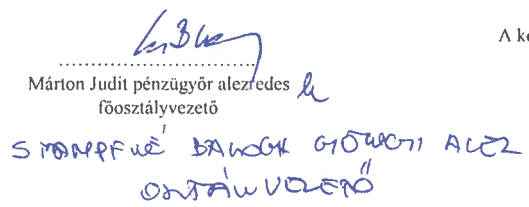 A k
Márton Judit pénzügyőr alezredes h
főosztályvezető
STAMPFNÉ BALOGH GYÖNGYI ALEZ
OSZTÁLYVEZETŐ